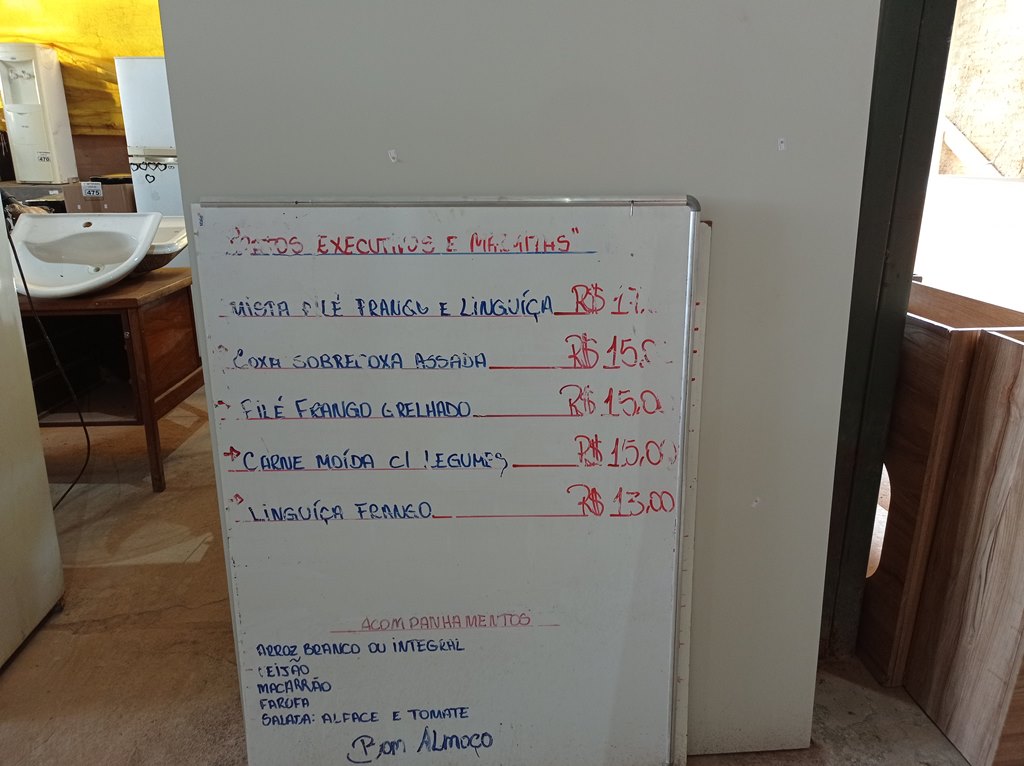 470
475
EXECUTIVOS E
MISTA FILÉ FRANGO E LINGUIÇA R$ 17,
COXA SOBRECOXA ASSADA R$ 15,0
FILÉ FRANGO GRELHADO R$ 15,0
CARNE MOÍDA C/ LEGUMES R$ 15,00
LINGUIÇA FRANGO R$ 13,00
ACOMPANHAMENTOS
ARROZ BRANCO OU INTEGRAL
FEIJÃO
MACARRÃO
FAROFA
SALADA: ALFACE E TOMATE
Bom ALMOÇO